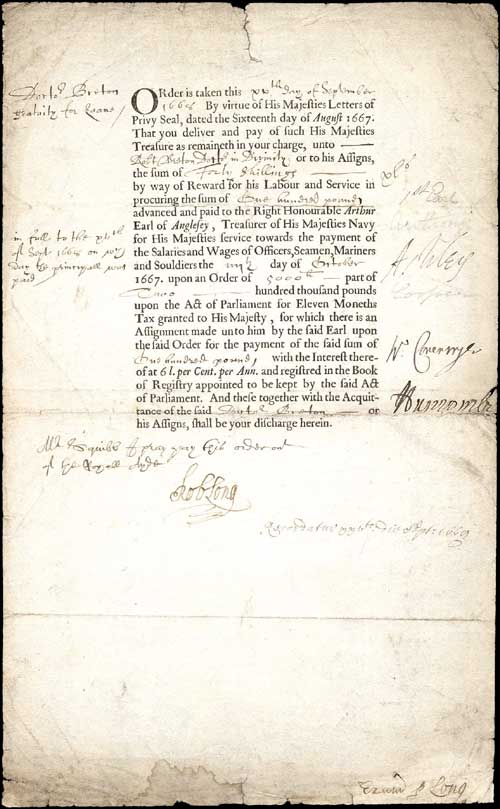 Doctor Breton
gratuity for Loane
in full to the
of Sept 1668 on wch
day the principall was
paid
ORder is taken this xvth day of September
1668 By virtue of His Majesties Letters of
Privy Seal, dated the Sixteenth day of August 1667.
That you deliver and pay of such His Majesties
Treasure as remaineth in your charge, unto
Robt Breton Doctr in Divinity or to his Assigns,
the sum of Forty Shillings
by way of Reward for his Labour and Service in
procuring the sum of One hundred pounds
advanced and paid to the Right Honourable Arthur
Earl of Anglesey, Treasurer of His Majesties Navy
for His Majesties service towards the payment of
the Salaries and Wages of Officers, Seamen, Mariners
and Souldiers the day of October
1667. upon an Order of 5000th part of
Two hundred thousand pounds
upon the Act of Parliament for Eleven Moneths
Tax granted to His Majesty, for which there is an
Assignment made unto him by the said Earl upon
the said Order for the payment of the said sum of
One hundred pounds with the Interest there-
of at 6 l. per Cent. per Ann. and registred in the Book
of Registry appointed to be kept by the said Act
of Parliament. And these together with the Acquit-
tance of the said Doctor Breton or
his Assigns, shall be your discharge herein.
xls
Ashley
W Coventrye
Mr Squibb I pray pay this order out
of the Royall Ayde
Rob Long
Recordatur Sept: 1668
Long